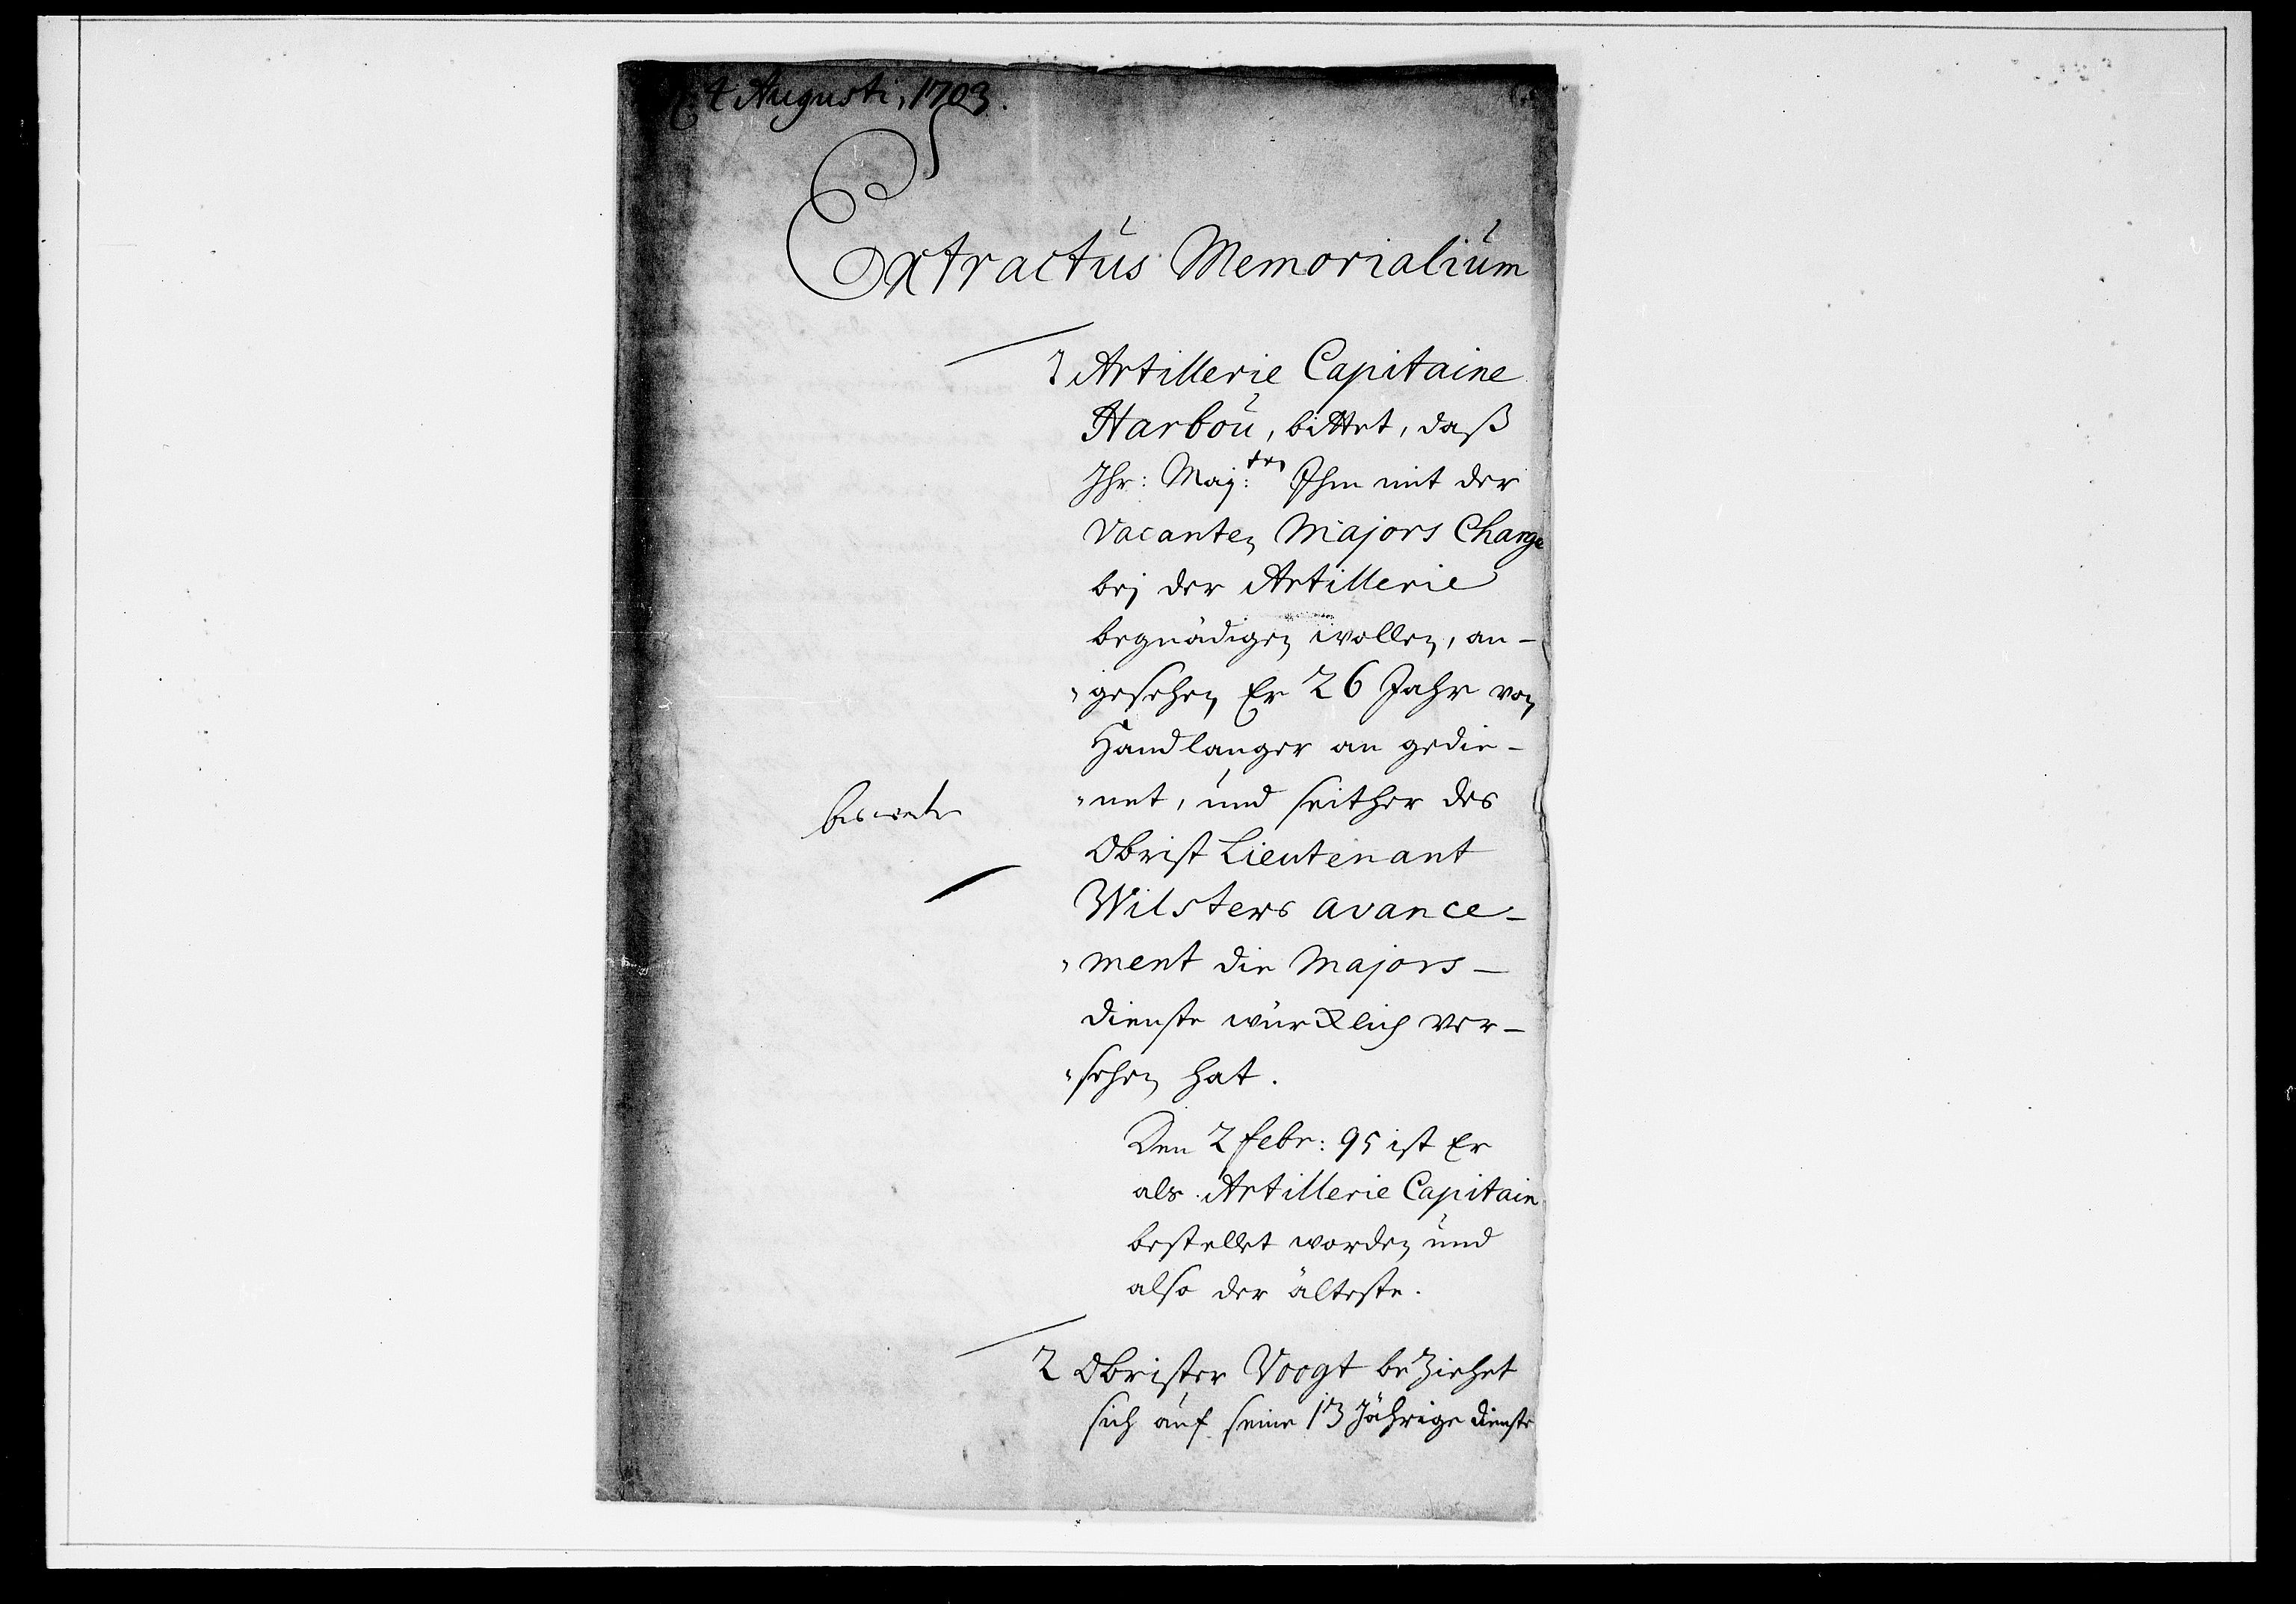 4 Augusti, 1703.
Extractus Memorialium
1 Artillerie Capitaine
Harboù, bittet, daß
Ihr: Maj:tes Ihm mit der
Vacanten Majors Charge
bej der Artillerie
begnädigen wollen, an-
"gesehen Er 26 Jahr von
Handlanger an gedie-
"net, und seither des
Obrist Lieutenant
Wilsters avance-
"ment die Majors-
dienste würcklich ver-
"sehen hat.
Den 2 Febr: 95 ist Er
als Artillerie Capitain
bestellet worden und
also der älteste.
2 Obrister Voogt beziehet
sich auf seine 13 Jährige dienste